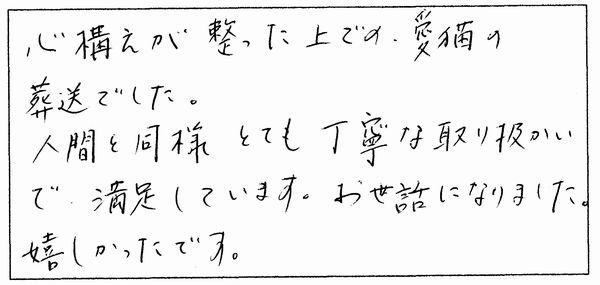 心構えが整った上での、愛猫の
葬送でした。
人間と同様とても丁寧な取り扱かい
で、満足しています。お世話になりました。
嬉しかったです。